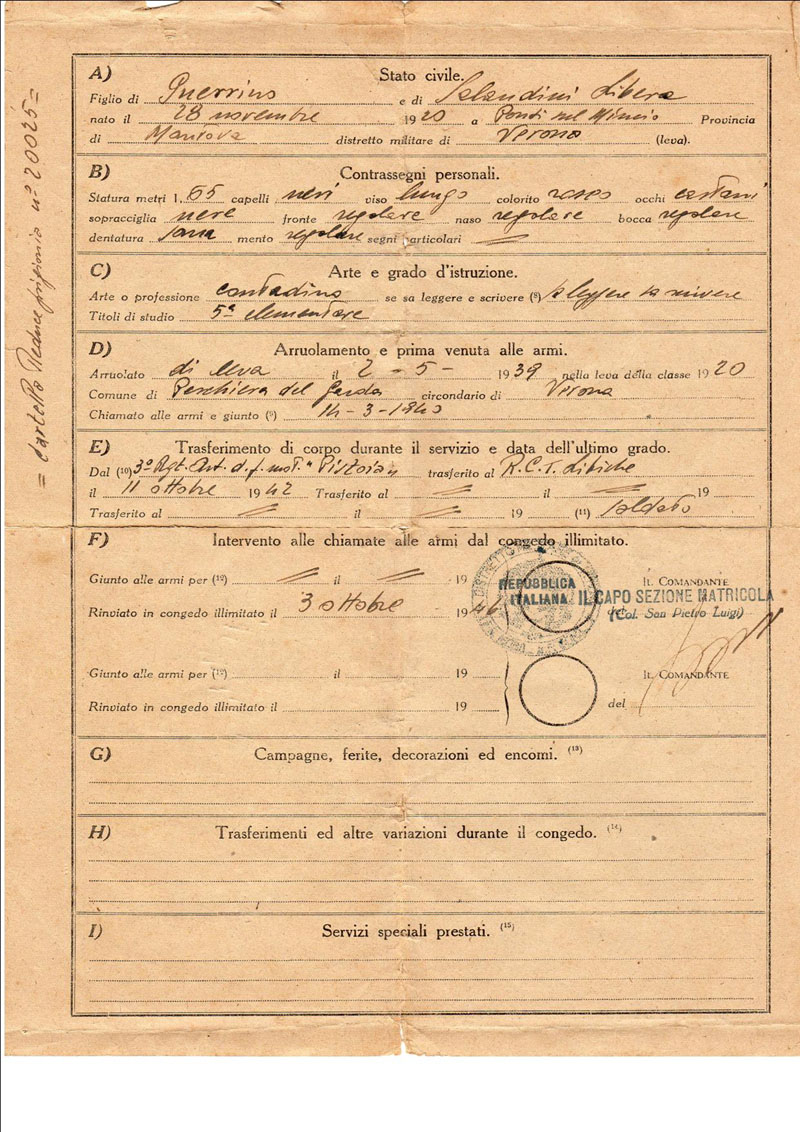 = Cartella Reduce prigionia n° 20025 =
A) Stato civile.
Figlio di Guerrino e di Salandini Libera
nato il 28 novembre 1920 a Ponti sul Mincio Provincia
di Mantova distretto militare di Verona (leva).
B) Contrassegni personali.
Statura metri 1. 65 capelli neri viso lungo colorito roseo occhi castani
sopracciglia nere fronte regolare naso regolare bocca regolare
dentatura sana mento regolare segni particolari =
C) Arte e grado d'istruzione.
Arte o professione contadino se sa leggere e scrivere (8) sa leggere sa scrivere
Titoli di studio 5ª elementare
D) Arruolamento e prima venuta alle armi.
Arruolato di leva il 2 - 5 - 1939 nella leva della classe 1920
Comune di Peschiera del Garda circondario di Verona
Chiamato alle armi e giunto (9) 14 - 3 - 1940
E) Trasferimento di corpo durante il servizio e data dell'ultimo grado.
Dal (10) 3° Rgt. Art. d. f. mot. "Pistoia" trasferito al R.C.T. Libiche
il 11 ottobre 1942 Trasferito al = il = 19
Trasferito al = il = 19 (11) soldato
F) Intervento alle chiamate alle armi dal congedo illimitato.
Giunto alle armi per (12) = il = 19 IL COMANDANTE
REPUBBLICA ITALIANA
IL CAPO SEZIONE MATRICOLA
Rinviato in congedo illimitato il 3 ottobre 1946 (Col. San Pietro Luigi)
Giunto alle armi per (12) il 19 IL COMANDANTE
Rinviato in congedo illimitato il 19 del
G) Campagne, ferite, decorazioni ed encomi. (13)
H) Trasferimenti ed altre variazioni durante il congedo. (14)
I) Servizi speciali prestati. (15)